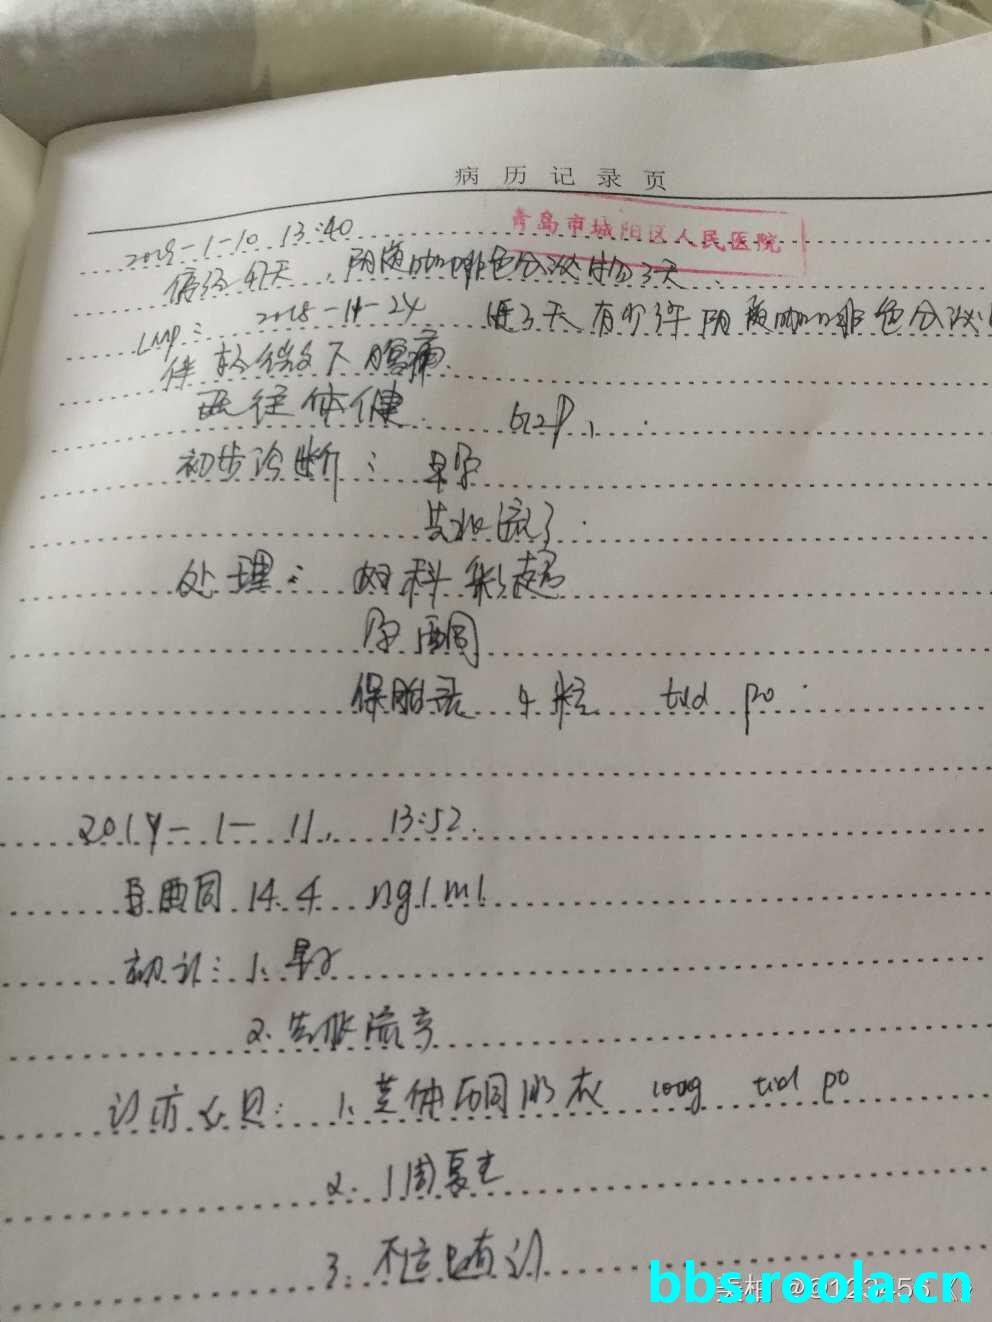 病历记录页
青岛市城阳区人民医院
2019-1-10 13:40
停经47天，阴道咖啡色分泌物3天
LMP：2018-11-24 近3天有少许阴道咖啡色分泌
伴轻微下腹痛
既往体健 G2P1
初步诊断：早孕
先兆流产
处理：妇科彩超
孕酮
保胎灵 4粒 tid po
2019-1-11 13:52
孕酮 14.4 ng/ml
初诊：1、早孕
2、先兆流产
诊疗意见：1、黄体酮胶 100mg tid po
2、1周复查
3、不适随诊
bbs.roola.cn